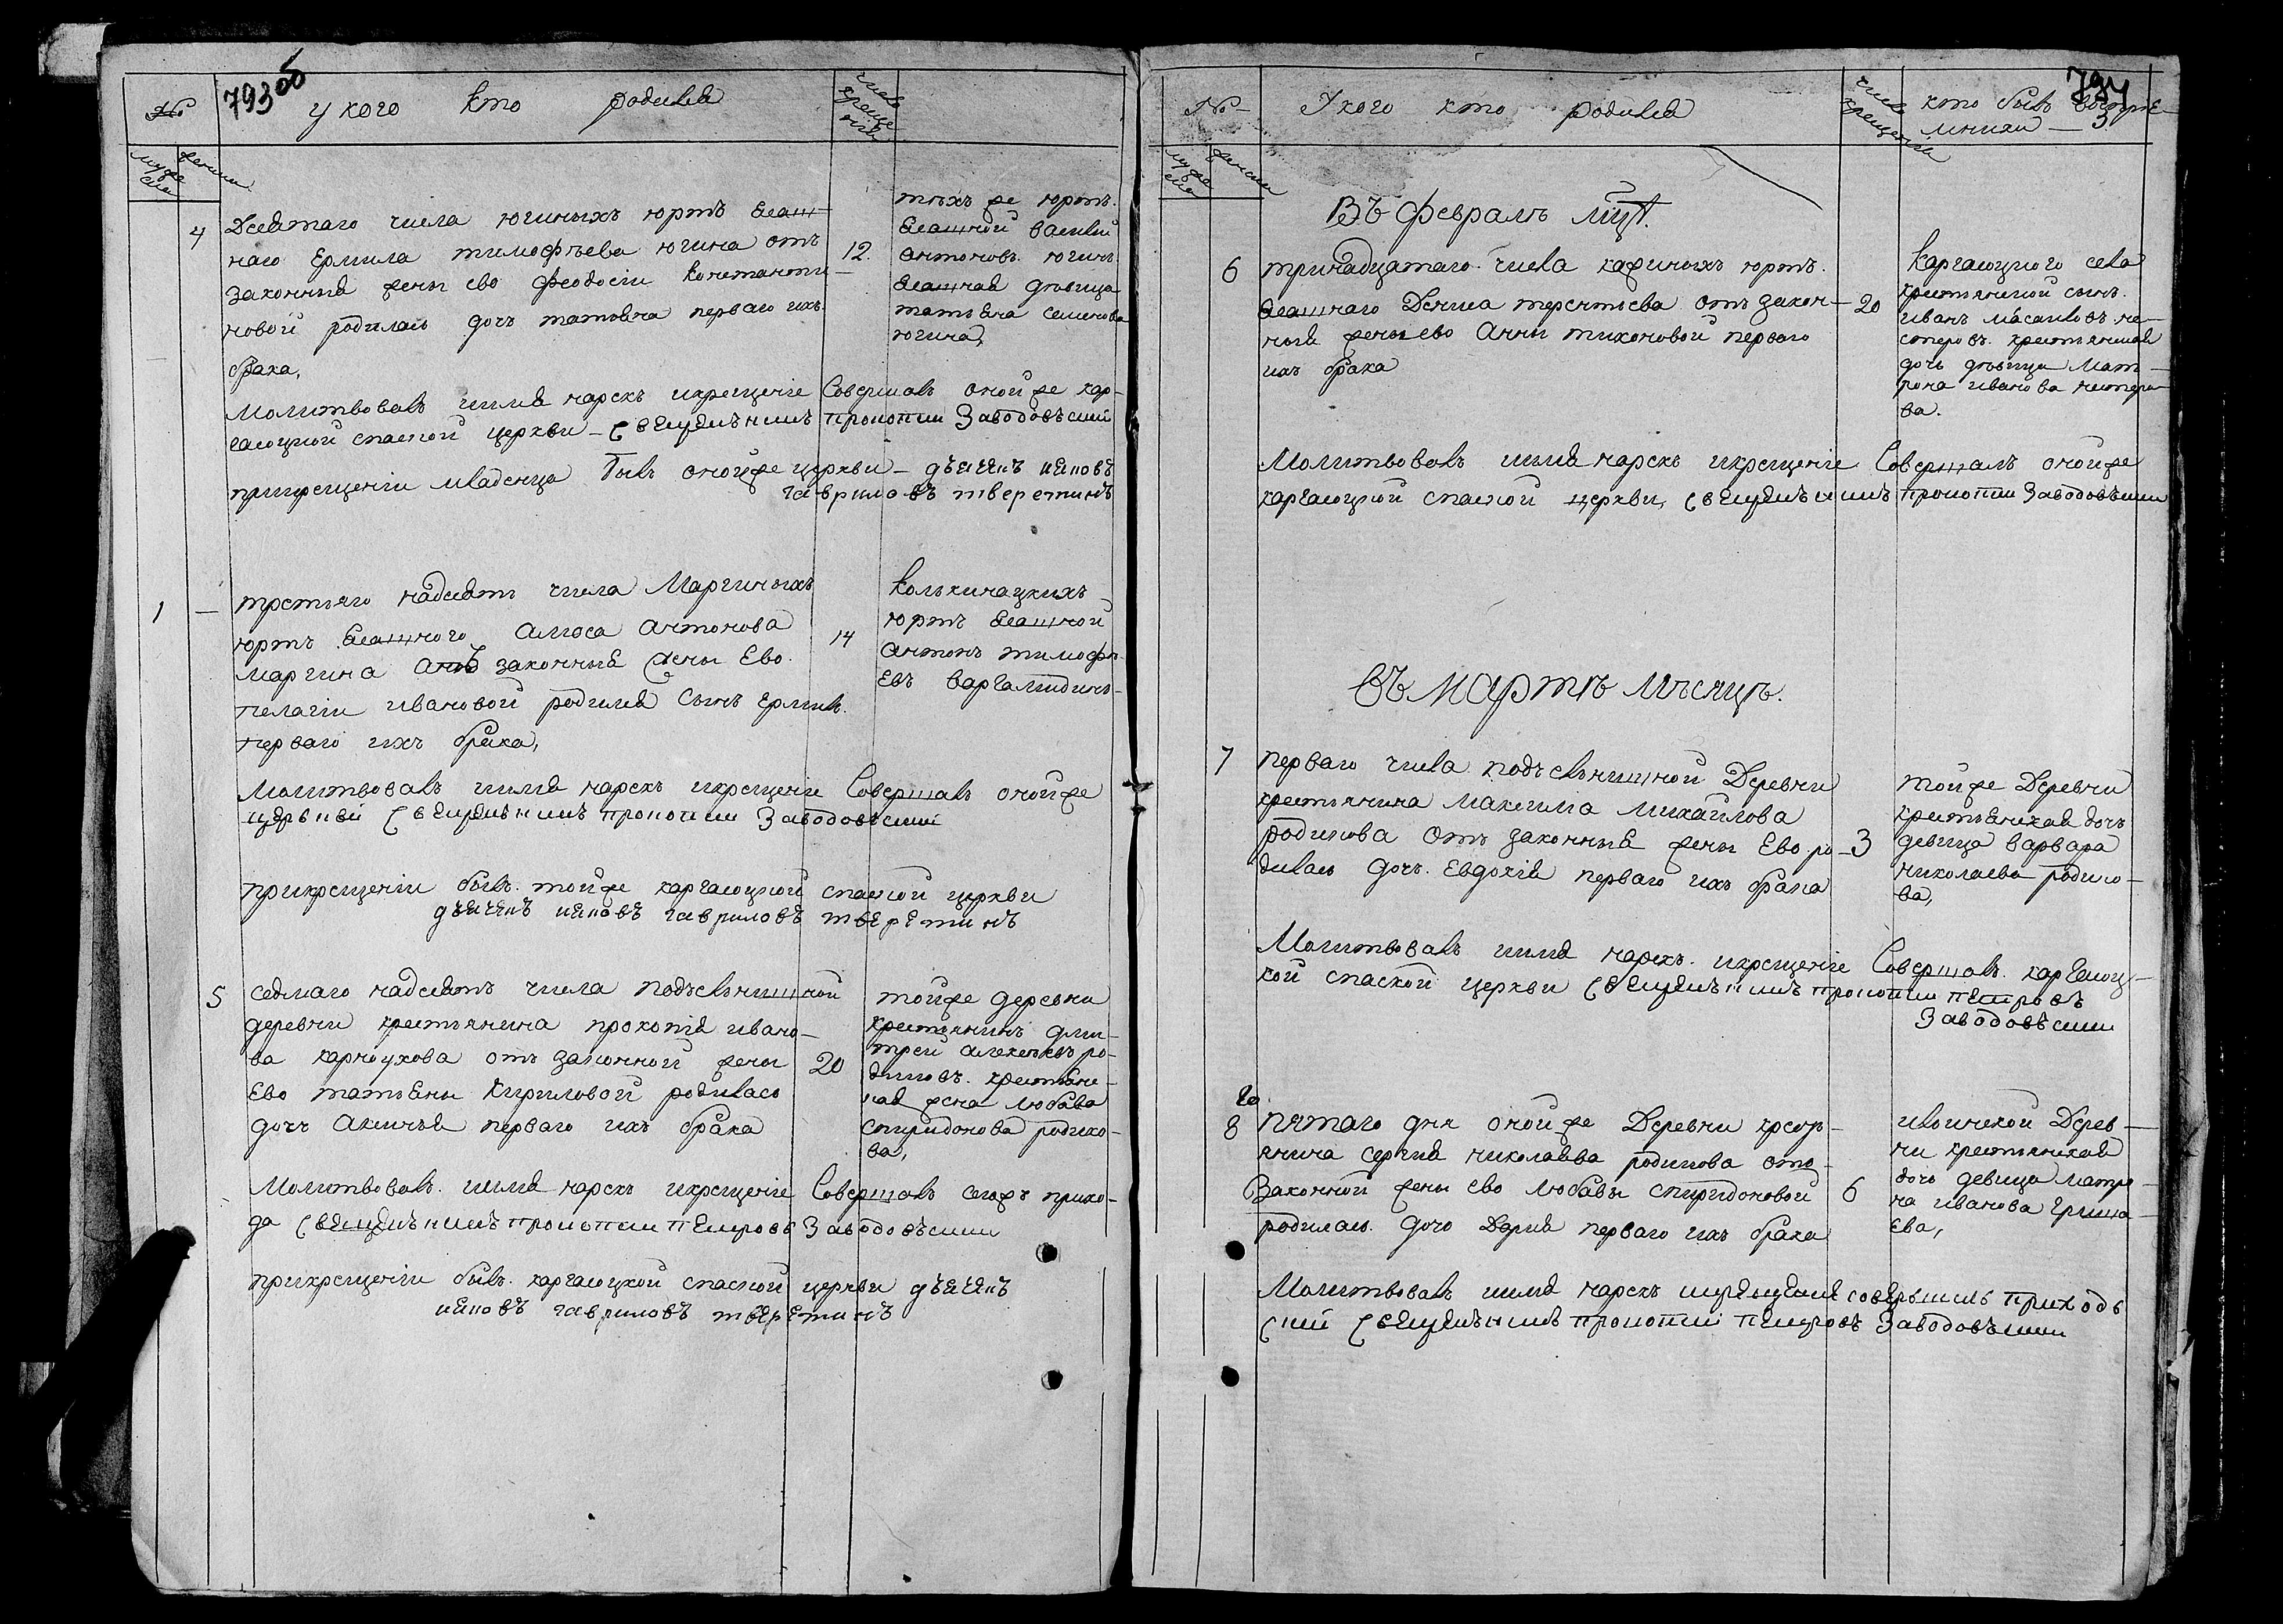 793 об
№ у кого кто родился число крещения
мужеска женска
4 Десятаго числа югиныхъ юртъ ясаш-
наго Ермила тимофѣева югина отъ
законныя жены ево феодосіи констанъти-
новой родилась дочь татьяна перваго ихъ
брака,
12.
тѣхъ же юртъ
ясашной василий
антоновъ югинъ
ясашная дѣвица
татьяна семенова
югина,
Молитвовалъ имя нарекъ икрещеніе Совершалъ оной же кар-
гасоцкой спаской церкви – священникъ прокопии Заводовѣский
прикрещеніи младенца былъ онойже церкви – дьячекъ
гавриловъ тверетинъ
1 — третьяго надесять числа Маргиныхъ
юртъ ясашного Амоса Антонова
маргина законныя жены Ево
пелагіи ивановой родился сынъ ермилъ
перваго ихъ брака,
14
юртъ ясашной
антонъ тимофѣ-
евъ
Молитвовалъ имя нарекъ икрещеніе Совершалъ онойже
церькви священникъ прокопии Заводовѣскии
прикрещеніи былъ тойже каргасоцкой спаской церкви
дьячекъ гавриловъ тверетинъ
5 седмаго надесять числа подъельнишной
деревни крестьянина прокопія ивано-
ва карноухова отъ законной жены
Ево татьяны Кириловой родилась
дочь Акинья перваго ихъ брака
20
тойже деревни
крестьянинъ дми-
трей алексѣевъ ро-
диковъ. крестьянс-
кая жена любава
спиридонова родико-
ва,
Молитвовалъ имя нарекъ икрещеніе Совершалъ сегожъ прихо-
да священникъ прокопии петровъ Заводовѣскии
прикрещеніи былъ каргасоцкой спаской церкви дьячекъ
гавриловъ тверетинъ
794
№ У кого кто родился число крещения кто былъ воспрѣ-
мники — 3
мужеска женска
Въ февралѣ мцѣ.
6 тринадцатаго числа кажиныхъ юртъ
ясашнаго Дениса терентьева отъ закон-
ныя жены ево Анны тихоновой перваго
ихъ брака
20
Каргасоцкого села
крестьянской сынъ
иванъ не-
стеровъ. крестьянская
дочь дѣвица Мат-
рона иванова нестеро-
ва.
Молитвовалъ имя нарекъ икрещеніе Совершалъ онойже
каргасоцкой спаской церкви, священникъ прокопии Заводовѣскии
Въ мартѣ мѣсяцѣ.
7 перваго числа подъельнишной Деревни
крестьянина максима михайлова
родикова отъ законныя жены Ево ро-
дилась дочь Евдокія перваго ихъ брака
3
тойже Деревни
крестьянская дочь
девица варвара
николаева родико-
ва,
Молитвовалъ имя нарекъ икрещеніе Совершалъ каргасоц-
кой спаской церкви священникъ прокопии петровъ
Заводовѣскии
8 пятаго дня онойже Деревни кресть-
янина сергія николаева родикова отъ
Законной жены ево любавы спиридоновой
родилась дочь Дарія перваго ихъ брака
6
Дерев-
ни крестьянская
дочь девица матро-
на иванова гриша-
ева,
Молитвовалъ имя нарекъ икрещеніе совершилъ приходъ
ский священникъ прокопий петровъ Заводовѣскии